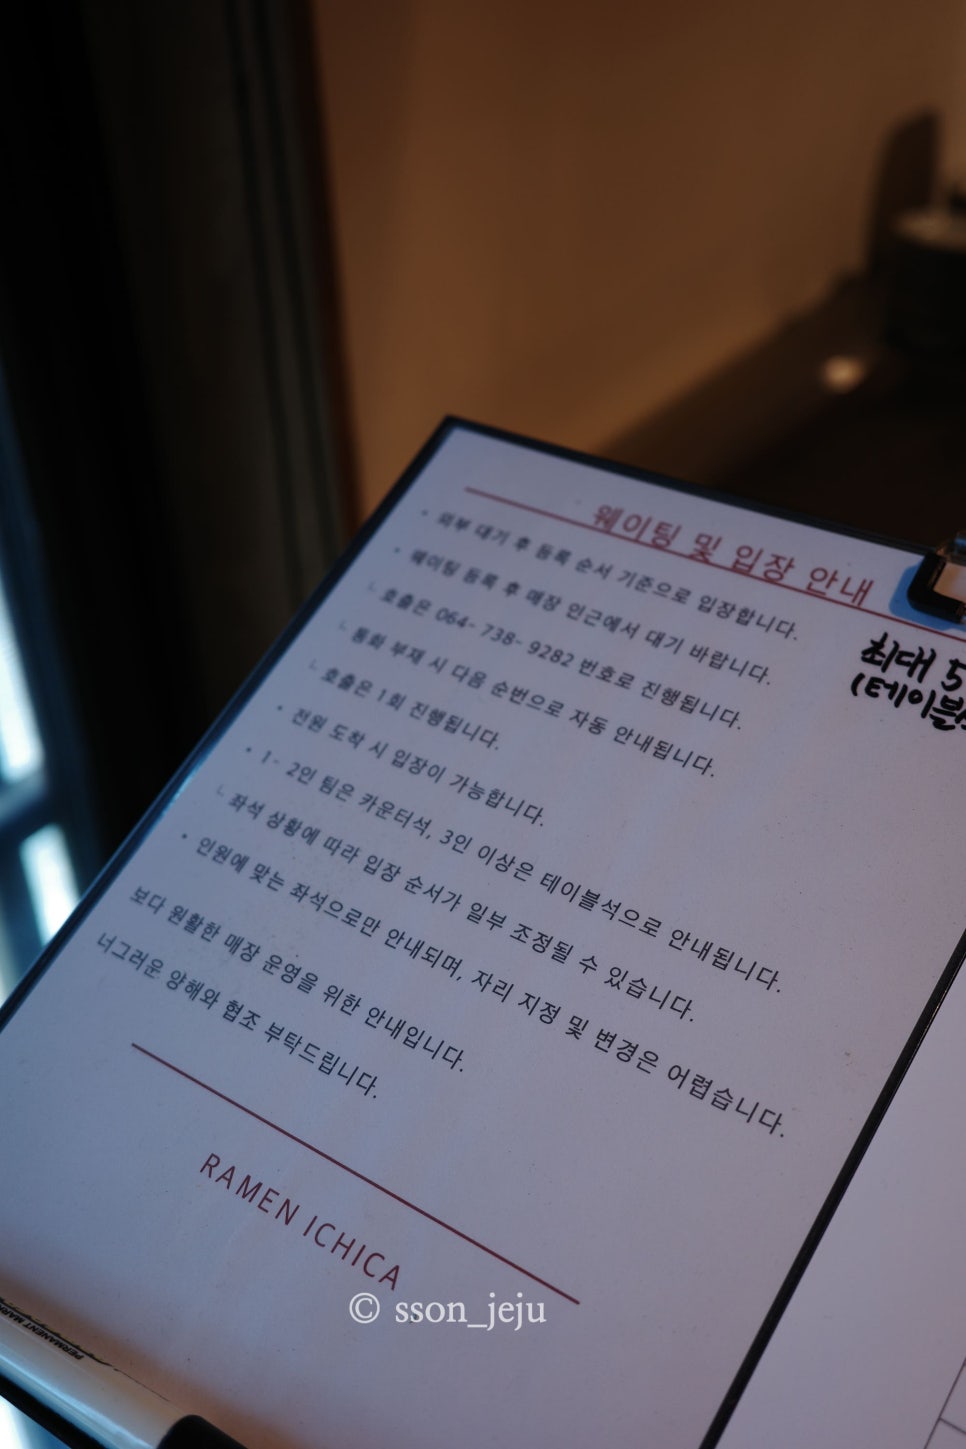 웨이팅 및 입장 안내
• 외부 대기 후 등록 순서 기준으로 입장합니다.
• 웨이팅 등록 후 매장 인근에서 대기 바랍니다.
ㄴ 호출은 064-738-9282 번호로 진행됩니다.
ㄴ 통화 부재 시 다음 순번으로 자동 안내됩니다.
ㄴ 호출은 1회 진행됩니다.
• 전원 도착 시 입장이 가능합니다.
• 1-2인 팀은 카운터석, 3인 이상은 테이블석으로 안내됩니다.
ㄴ 좌석 상황에 따라 입장 순서가 일부 조정될 수 있습니다.
• 인원에 맞는 좌석으로만 안내되며, 자리 지정 및 변경은 어렵습니다.
보다 원활한 매장 운영을 위한 안내입니다.
너그러운 양해와 협조 부탁드립니다.
RAMEN ICHICA
최대 5
(테이블
PERMANENT MARK
© sson_jeju